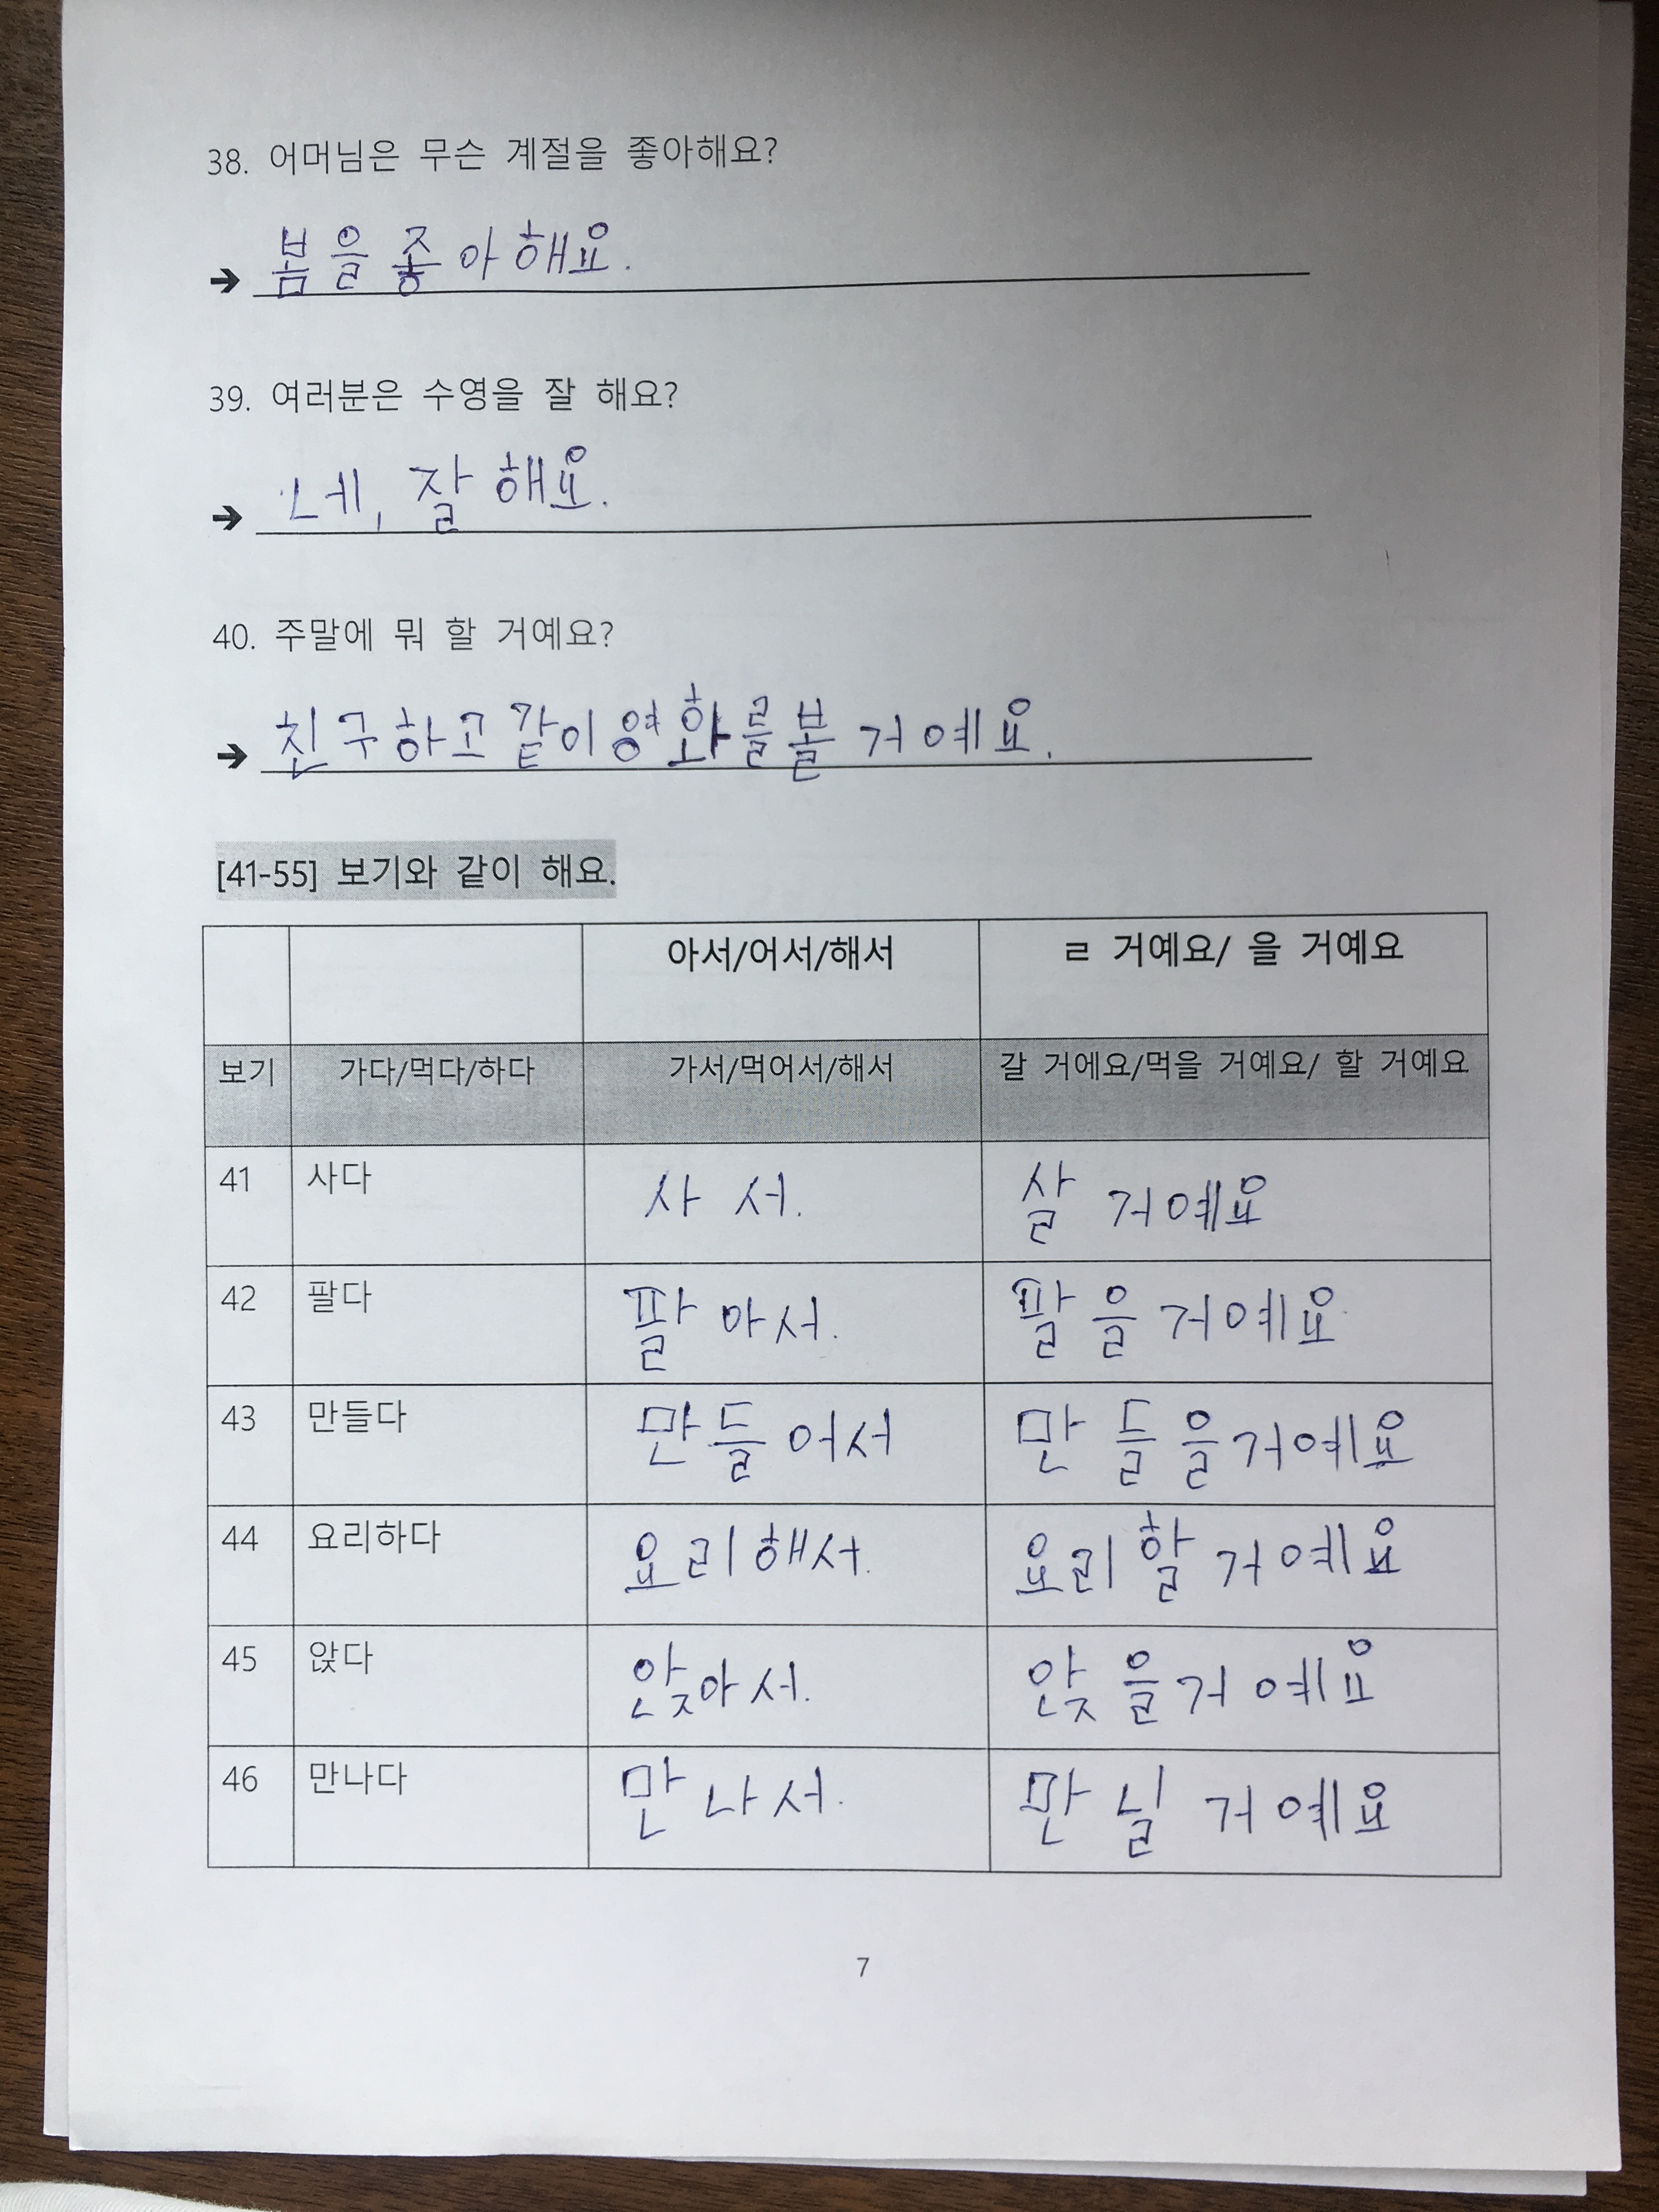 38. 어머님은 무슨 계절을 좋아해요?
➔ 봄을 좋아해요.
39. 여러분은 수영을 잘 해요?
➔ 네, 잘 해요.
40. 주말에 뭐 할 거예요?
➔ 친구하고 같이 영화를 볼 거예요.
[41-55] 보기와 같이 해요.
아서/어서/해서 ㄹ 거예요/ 을 거예요
보기 가다/먹다/하다 가서/먹어서/해서 갈 거에요/먹을 거예요/ 할 거예요
41 사다 사서. 살 거예요
42 팔다 팔아서. 팔을 거예요
43 만들다 만들어서 만들을거예요
44 요리하다 요리해서. 요리할 거예요
45 앉다 앉아서. 앉을거예요
46 만나다 만나서. 만닐 거예요
7